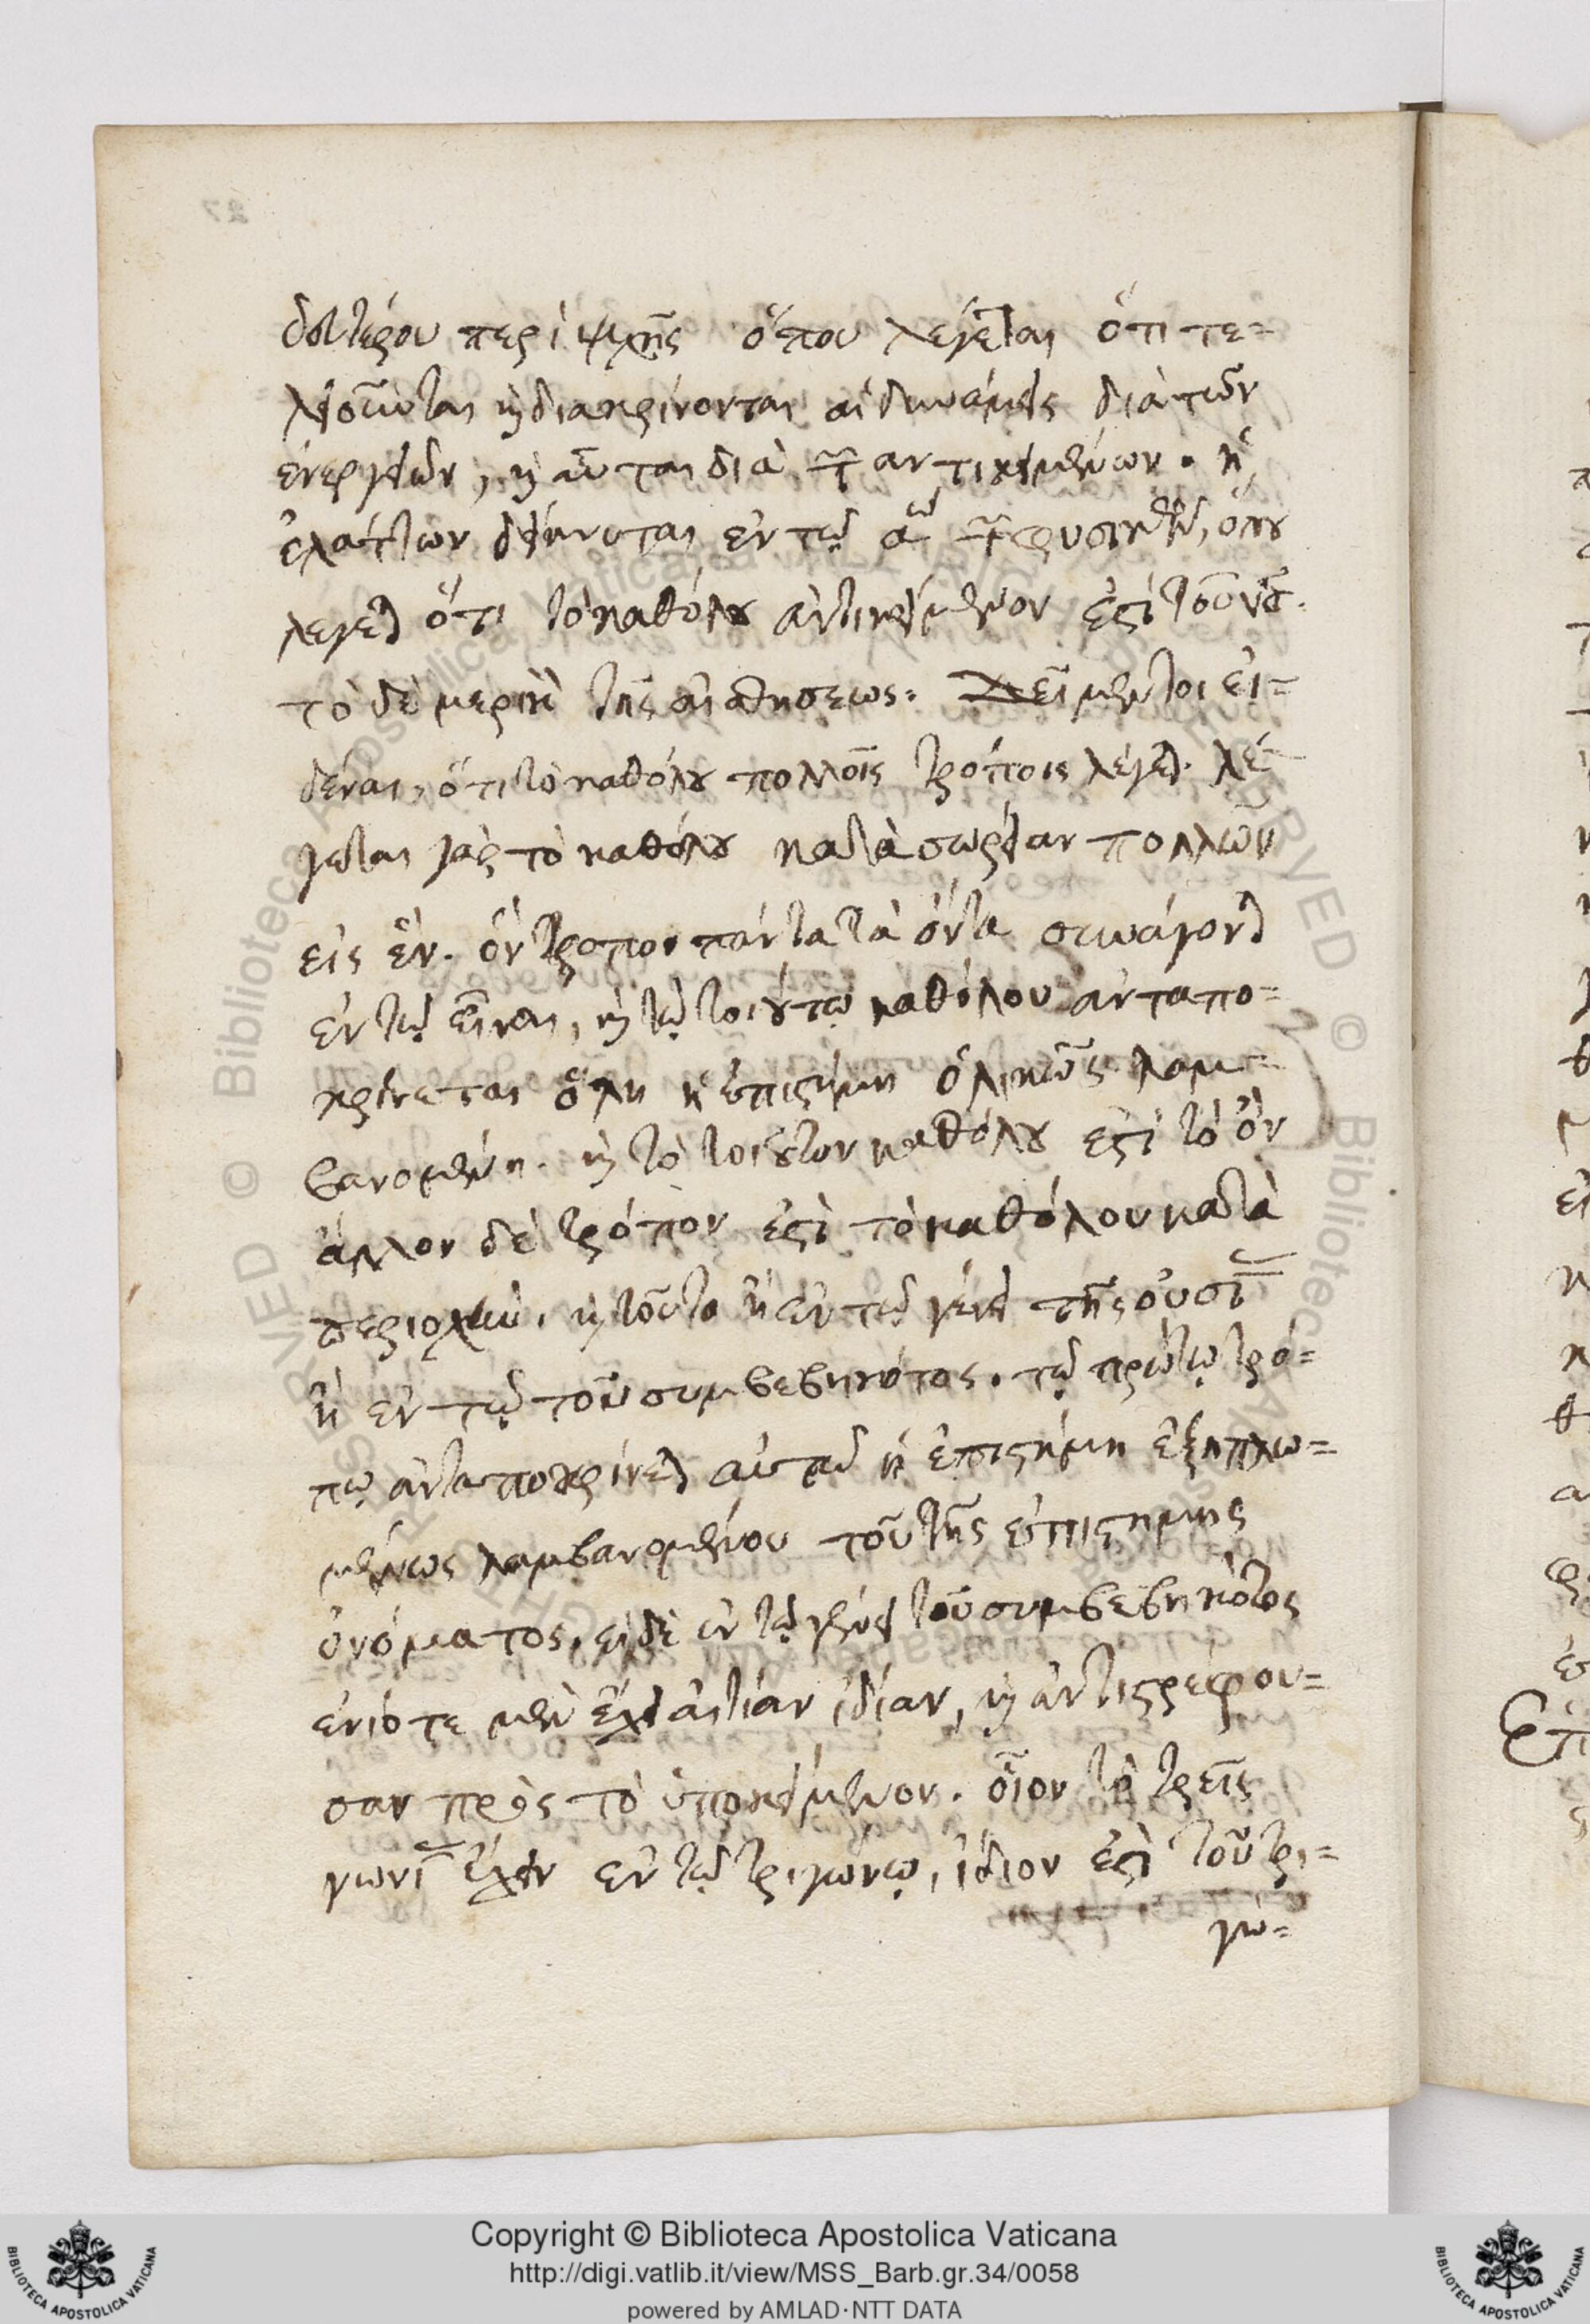 δευτέρου περὶ ψυχῆς ὅπου λέγεται ὅτι τε=
λειοῦνται καὶ διακρίνονται αἱ δυνάμεις διὰ τῶν
ἐνεργειῶν, καὶ αὗται διὰ τῶν ἀντικειμένων. ἡ
ἐλάττων δείκνυται ἐν τῷ αῳ τῶν φυσικῶν, ὅπου
λέγεται ὅτι τὸ καθόλου ἀντικείμενον ἐστὶ τοῦ νοῦ.
τὸ δὲ μερικὸν τῆς αἰσθήσεως. δεῖ μέντοι εἰ=
δέναι, ὅτι τὸ καθόλου πολλοῖς τρόποις λέγεται. λέ=
γεται γὰρ τὸ καθόλου κατὰ σωρείαν πολλῶν
εἰς ἕν. ὃν τρόπον πάντα τὰ ὄντα συνάγονται
ἐν τῷ εἶναι, καὶ τῷ τοιούτῳ καθόλου ἀνταπο=
κρίνεται ὅλη ἡ ἐπιστήμη ὁλικῶς λαμ=
βανομένη. καὶ τὸ τοιοῦτον καθόλου ἐστὶ τὸ ὄν
ἄλλον δὲ τρόπον ἐστὶ τὸ καθόλου κατὰ
περιοχὴν. καὶ τοῦτο ἢ ἐν τῷ γένει τῆς οὐσίας
ἢ ἐν τῷ τοῦ συμβεβηκότος. τῷ πρώτῳ τρό=
πῳ ἀνταποκρίνεται αὐτῷ ἡ ἐπιστήμη ἐξηπλω=
μένως λαμβανομένου τοῦ τῆς ἐπιστήμης
ὀνόματος. εἰ δὲ ἐν τῷ γένει τοῦ συμβεβηκότος
ἐνίοτε μὲν ἔχει αἰτίαν ἰδίαν, καὶ ἀντιστρέφου=
σαν πρὸς τὸ ὑποκείμενον. οἷον τὸ τρεῖς
γωνίας ἔχειν ἐν τῷ τριγώνῳ, ἴδιον ἐστὶ τοῦ τρι=
γώ=
Copyright © Biblioteca Apostolica Vaticana
http://digi.vatlib.it/view/MSS_Barb.gr.34/0058
powered by AMLAD·NTT DATA